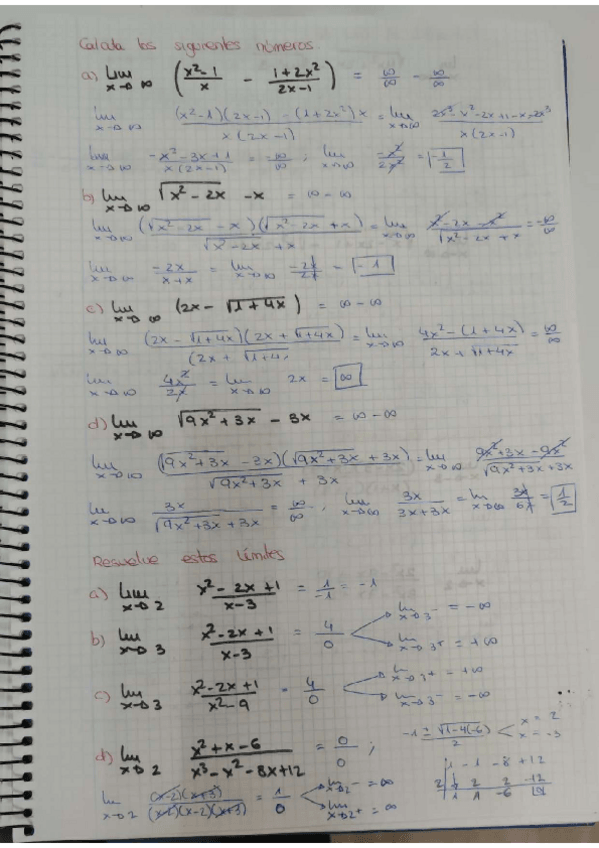 Calcula los siguientes números.
a) lim x→∞ (x²-1/x - 1+2x²/2x-1) = ∞/∞ - ∞/∞
lim x→∞ (x²-1)(2x-1) - (1+2x²)x / x(2x-1) = lim x→∞ 2x³-x²-2x+1-x-2x³ / x(2x-1)
lim x→∞ -x²-3x+1 / x(2x-1) = -∞/∞ ; lim x→∞ -x²/2x² = -1/2
b) lim x→∞ √x²-2x -x = ∞-∞
lim x→∞ (√x²-2x - x)(√x²-2x + x) / √x²-2x + x = lim x→∞ x²-2x-x² / √x²-2x + x = -∞/∞
lim x→∞ -2x/x+x = lim x→∞ -2x/2x = -1
c) lim x→∞ (2x - √1+4x) = ∞-∞
lim x→∞ (2x - √1+4x)(2x + √1+4x) / (2x + √1+4x = lim x→∞ 4x²-(1+4x) / 2x+√1+4x = ∞/∞
lim x→∞ 4x²/2x = lim x→∞ 2x = ∞
d) lim x→∞ √9x²+3x - 3x = ∞-∞
lim x→∞ (√9x²+3x - 3x)(√9x²+3x + 3x) / √9x²+3x + 3x = lim x→∞ 9x²+3x-9x² / √9x²+3x+3x
lim x→∞ 3x / √9x²+3x+3x = ∞/∞ ; lim x→∞ 3x/3x+3x = lim x→∞ 3x/6x = 1/2
Resuelve estos límites
a) lim x→2 x²-2x+1/x-3 = 1/-1 = -1
b) lim x→3 x²-2x+1/x-3 = 4/0 lim x→3⁻ = -∞
lim x→3⁺ = +∞
c) lim x→3 x²-2x+1/x²-9 = 4/0 lim x→3⁺ = +∞
lim x→3⁻ = -∞
d) lim x→2 x²+x-6/x³-x²-8x+12 = 0/0 ; -1±√1-4(-6)/2 x=2
x=-3
1 -1 -8 +12
2 2 2 -12
1 1 -6 0
lim x→2 (x-2)(x+3)/(x-2)(x-2)(x+3) = 1/0 lim x→2⁻ = ∞
lim x→2⁺ = ∞